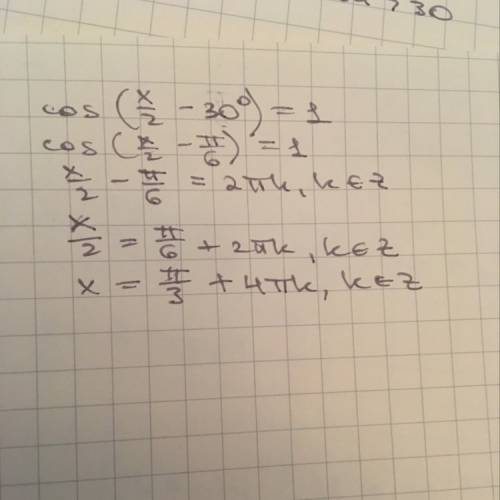 cos (x/2 - 30°) = 1
cos (x/2 - π/6) = 1
x/2 - π/6 = 2πk, k∈z
x/2 = π/6 + 2πk, k∈z
x = π/3 + 4πk, k∈z